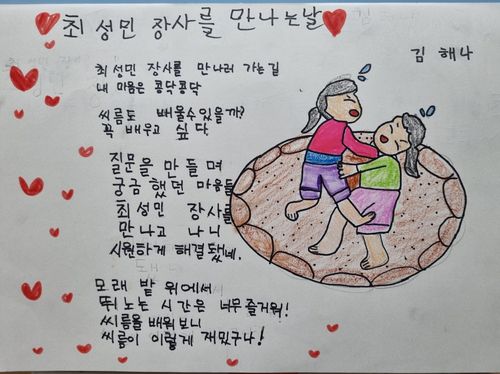 최성민 장사를 만나는날
김 해나
최성민 장사를 만나러 가는길
내 마음은 콩닥콩닥
씨름도 배울수있을까?
꼭 배우고 싶다
질문을 만들며
궁금했던 마음들
최성민 장사를
만나고 나니
시원하게 해결됐네.
모래 밭 위에서
뛰노는 시간은 너무즐거워!
씨름을배워보니
씨름이 이렇게 재밌구나!